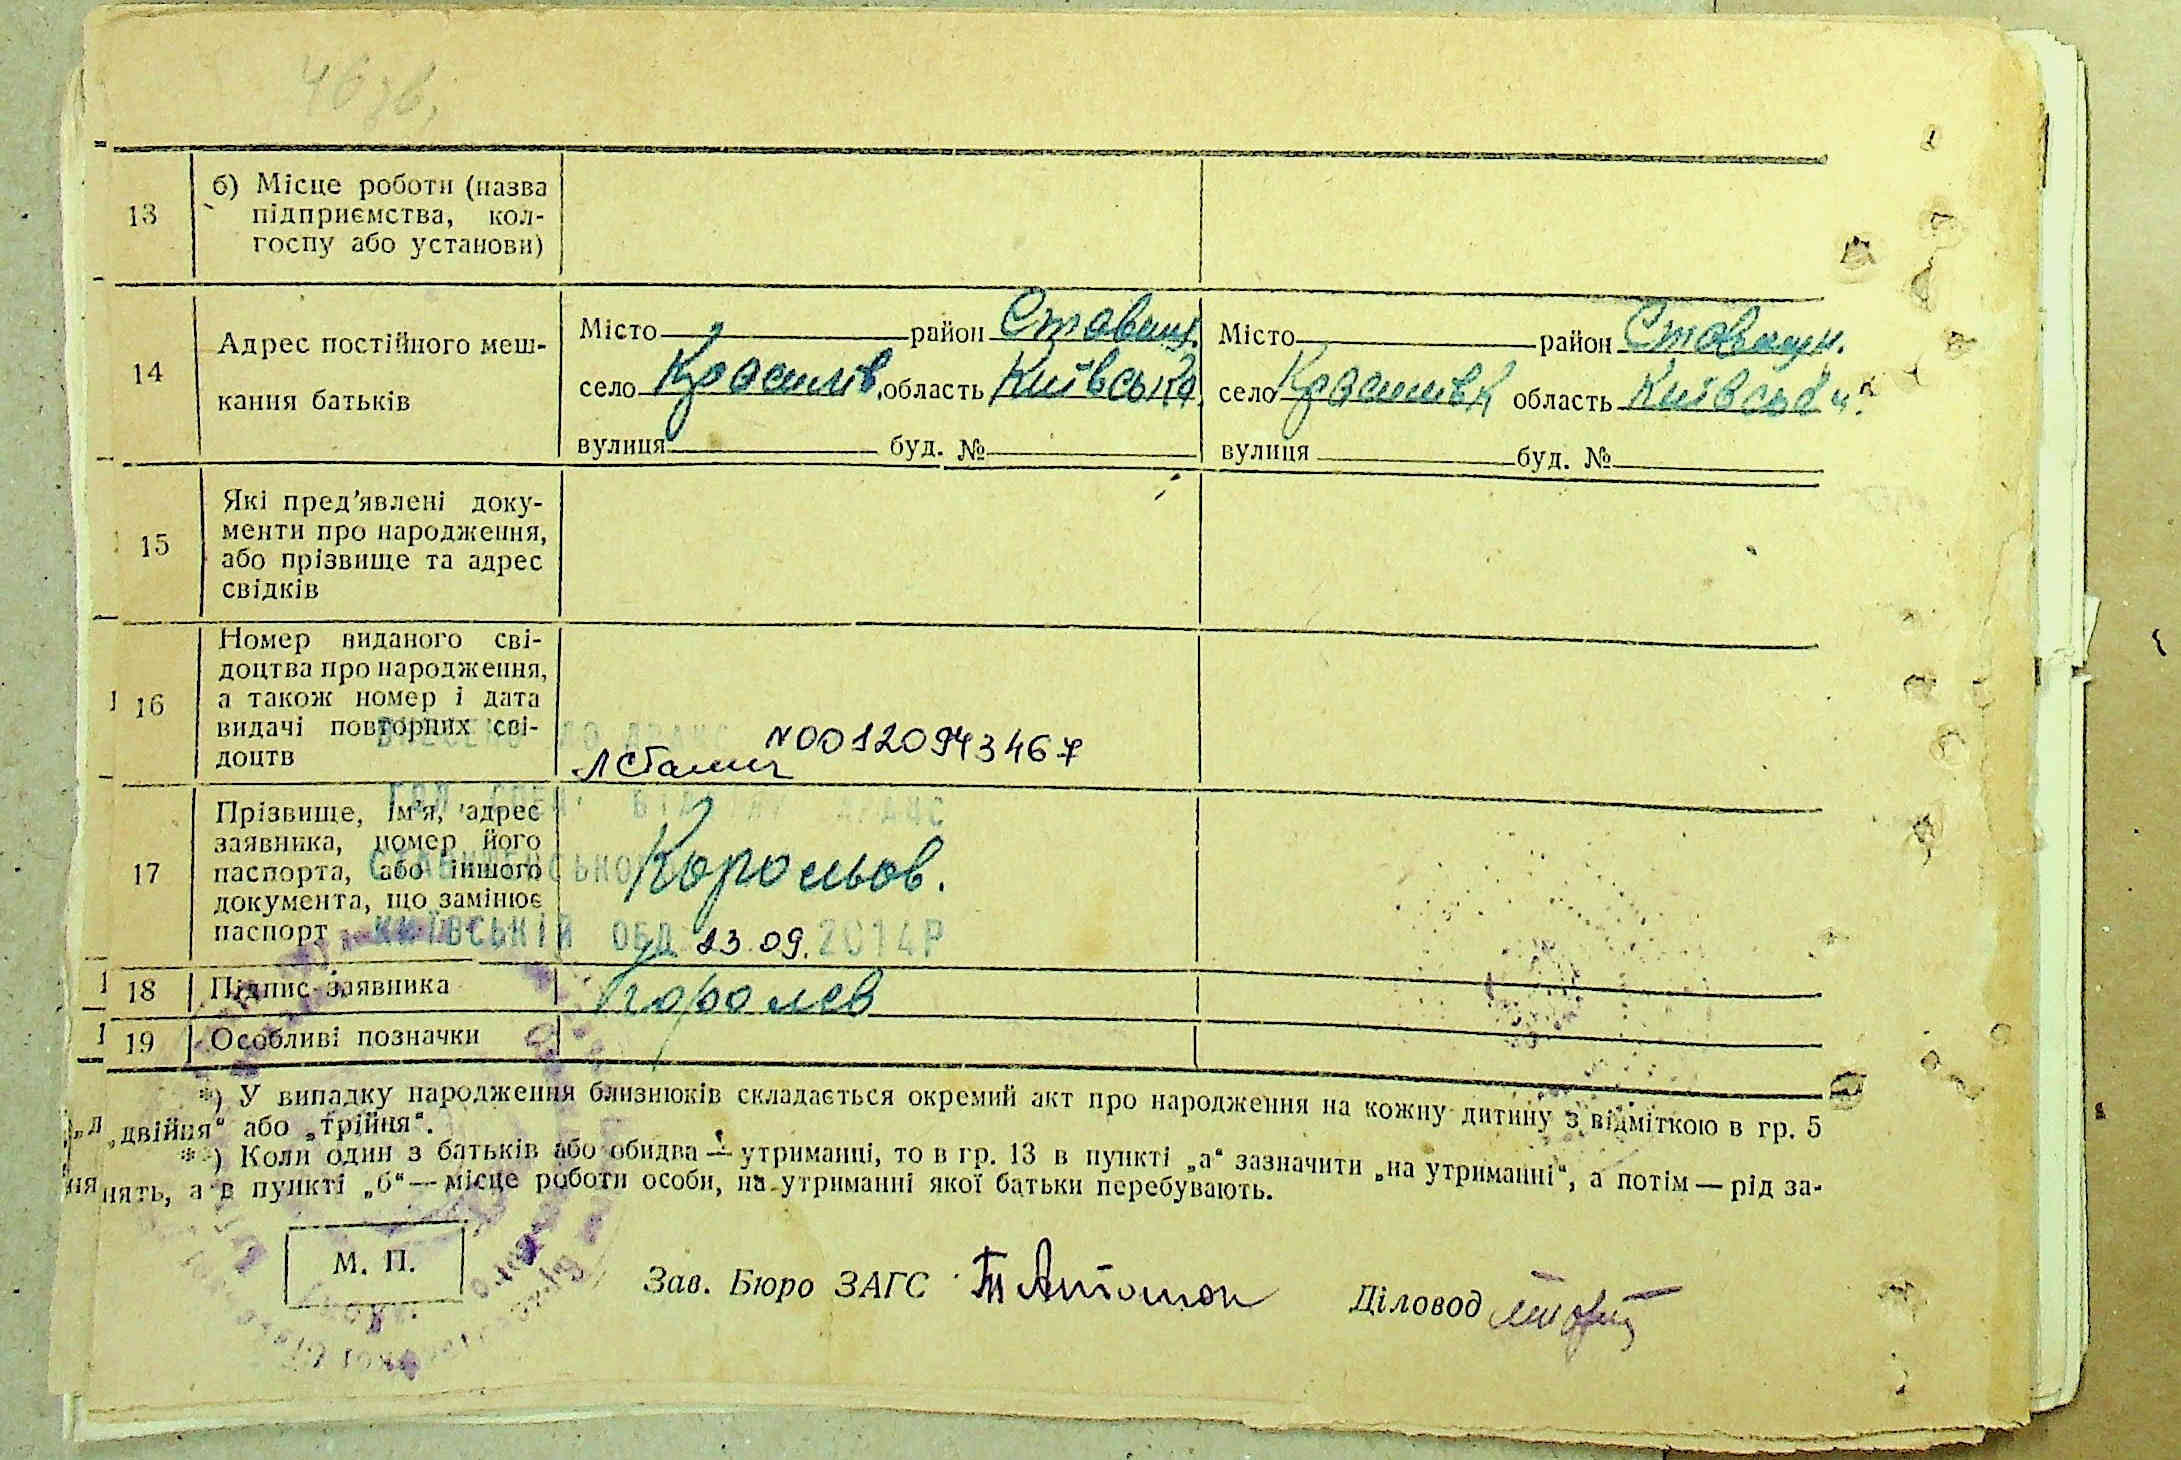 46 зв.
13 б) Місце роботи (назва
підприємства, кол-
госпу або установи)
14 Адрес постійного меш-
кання батьків
Місто район Ставищ. Місто район Ставищ.
село Красилів. область Київська село область
вулиця буд. № вулиця буд. №
15 Які пред'явлені доку-
менти про народження,
або прізвище та адрес
свідків
16 Номер виданого сві-
доцтва про народження,
а також номер і дата
видачі повторних сві-
доцтв
N00120943467
17 Прізвище, ім'я, адрес
заявника, номер його
паспорта, або іншого
документа, що замінює
паспорт
Корольов.
КИЇВСЬКІЙ ОБЛ 23.09.2014Р
18 Підпис заявника Королев
19 Особливі позначки
*) У випадку народження близнюків складається окремий акт про народження на кожну дитину з відміткою в гр. 5
„двійня“ або „трійня“.
**) Коли один з батьків або обидва — утриманці, то в гр. 13 в пункті „а“ зазначити „на утриманні“, а потім — рід за-
нять, а в пункті „б“ — місце роботи особи, на утриманні якої батьки перебувають.
М. П.
Зав. Бюро ЗАГС Діловод